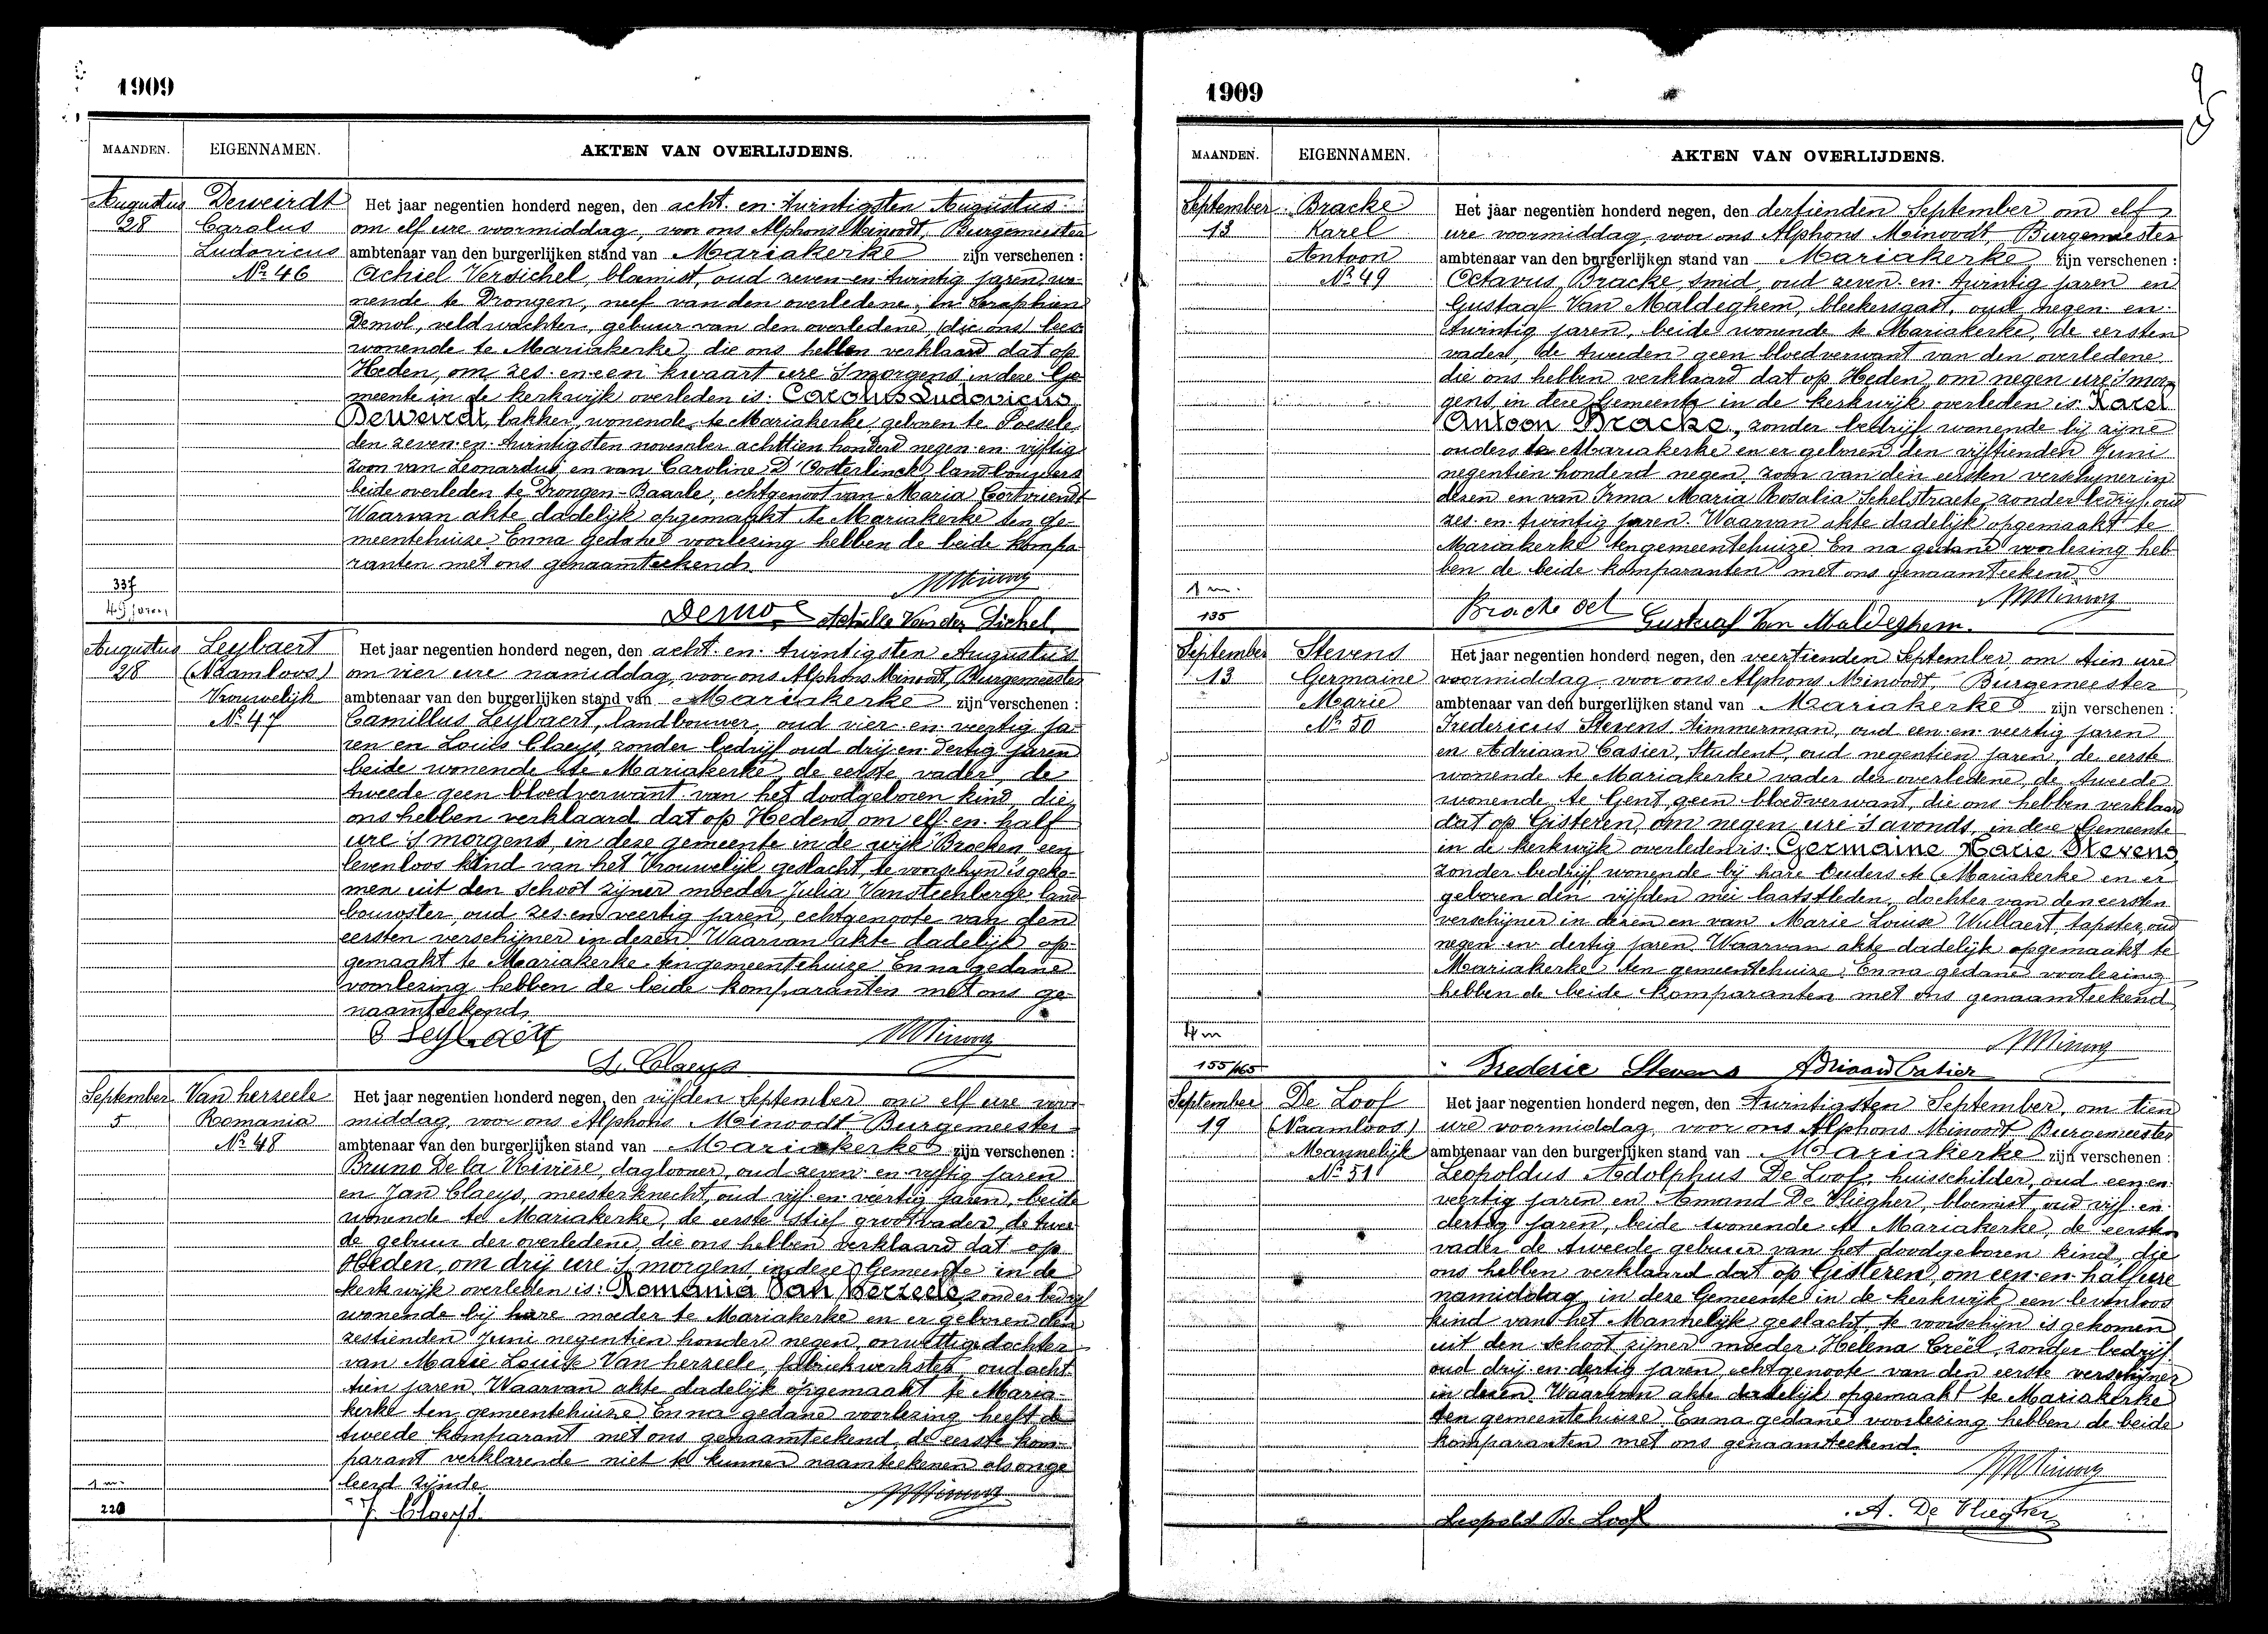 1909
MAANDEN. EIGENNAMEN. AKTEN VAN OVERLIJDENS.
Augustus
28
Deweirdt
Carolus
Ludovicus
Nº 46
Het jaar negentien honderd negen, den acht-en-twintigsten Augustus
om elf ure voormiddag, voor ons Alphons Minoodt, Burgemeester
ambtenaar van den burgerlijken stand van Mariakerke zijn verschenen :
Achiel Versichel, bloemist, oud zeven-en-twintig jaren, wo-
nende te Drongen, neef van den overledene, en Seraphien
Demol, veldwachter, gebuur van den overledene (die ons)
wonende te Mariakerke, die ons hebben verklaard dat op
Heden, om zes-en-een kwaart ure 's morgens in deze Ge-
meente in de kerkwijk overleden is: Carolus Ludovicus
Deweirdt, bakker, wonende te Mariakerke, geboren te Poesele
den zeven-en-twintigsten november achttien honderd negen-en-vijftig
zoon van Leonardus en van Caroline D'Oosterlinck landbouwers
beide overleden te Drongen-Baarle, echtgenoot van Maria Cortvriendt
Waarvan akte dadelijk opgemaakt te Mariakerke ten ge-
meentehuize. En na gedane voorlezing hebben de beide kompa-
ranten met ons genaamteekend.
337
49 jaren
Demol Achille Van der Sichel
Augustus
28
Leybaert
(Naamloos)
Vrouwelijk
Nº 47
Het jaar negentien honderd negen, den acht-en-twintigsten Augustus
om vier ure namiddag, voor ons Alphons Minoodt, Burgemeester
ambtenaar van den burgerlijken stand van Mariakerke zijn verschenen :
Camillus Leybaert, landbouwer, oud vier-en-veertig ja-
ren en Louis Claeys, zonder bedrijf oud drij-en-dertig jaren
beide wonende te Mariakerke, de eerste vader, de
tweede geen bloedverwant van het doodgeboren kind, die
ons hebben verklaard dat op Heden om elf-en-half
ure 's morgens, in deze gemeente in de wijk Broeken een
levenloos kind van het Vrouwelijk geslacht, te voorschijn is geko-
men uit den schoot zijner moeder Julia Vansteenberge, land-
bouwster, oud zes-en-veertig jaren, echtgenoote van den
eersten verschijner in dezen. Waarvan akte dadelijk op-
gemaakt te Mariakerke ten gemeentehuize En na gedane
voorlezing hebben de beide komparanten met ons ge-
naamteekend.
C Leybaert
L. Claeys
September
5
Van herzeele
Romania
Nº 48
Het jaar negentien honderd negen, den vijfden September om elf ure voor-
middag, voor ons Alphons Minoodt Burgemeester
ambtenaar van den burgerlijken stand van Mariakerke zijn verschenen :
Bruno De la Rivière, daglooner, oud zeven-en-vijftig jaren
en Jan Claeys, meesterknecht, oud vijf-en-veertig jaren, beide
wonende te Mariakerke, de eerste stief grootvader, de twee-
de gebuur der overledene, die ons hebben verklaard dat op
Heden, om drij ure 's morgens in deze Gemeente in de
kerkwijk overleden is: Romania Van herzeele, zonder bedrijf
wonende bij hare moeder te Mariakerke en er geboren den
zestienden Juni negentien honderd negen, onwettige dochter
van Marie Louise Van herzeele, fabriekwerkster, oud acht-
tien jaren. Waarvan akte dadelijk opgemaakt te Maria-
kerke ten gemeentehuize En na gedane voorlezing heeft de
tweede komparant met ons genaamteekend, de eerste kom-
parant verklarende niet te kunnen naamteekenen als onge-
leerd zijnde.
1 m.
220
J. Claeys
1909
9
MAANDEN. EIGENNAMEN. AKTEN VAN OVERLIJDENS.
September
13
Bracke
Karel
Antoon
Nº 49
Het jaar negentien honderd negen, den dertienden September om elf
ure voormiddag, voor ons Alphons Minoodt, Burgemeester
ambtenaar van den burgerlijken stand van Mariakerke zijn verschenen :
Octavus Bracke, smid, oud zeven-en-twintig jaren en
Gustaaf Van Maldeghem, bleekersgast, oud negen-en-
twintig jaren, beide wonende te Mariakerke, de eersten
vader, de tweeden geen bloedverwant van den overledene
die ons hebben verklaard dat op Heden, om negen ure 's mor-
gens in deze Gemeente in de kerkwijk overleden is: Karel
Antoon Bracke, zonder bedrijf wonende bij zijne
ouders te Mariakerke en er geboren den vijftienden Juni
negentien honderd negen, zoon van den eersten verschijner in
dezen en van Irma Maria Rosalia Schelstraete, zonder bedrijf, oud
zes-en-twintig jaren. Waarvan akte dadelijk opgemaakt te
Mariakerke ten gemeentehuize. En na gedane voorlezing heb-
ben de beide komparanten met ons genaamteekend.
1 m.
135
Bracke Oct Gustaaf Van Maldeghem.
September
13
Stevens
Germaine
Marie
Nº 50
Het jaar negentien honderd negen, den veertienden September, om tien ure
voormiddag voor ons Alphons Minoodt, Burgemeester
ambtenaar van den burgerlijken stand van Mariakerke zijn verschenen :
Fredericus Stevens timmerman, oud een-en-veertig jaren
en Adriaan Casier, student, oud negentien jaren, de eerste
wonende te Mariakerke vader der overledene, de tweede
wonende te Gent, geen bloedverwant, die ons hebben verklaard
dat op Gisteren, om negen ure 's avonds, in deze Gemeente
in de kerkwijk overleden is: Germaine Marie Stevens
zonder bedrijf, wonende bij hare Ouders te Mariakerke en er
geboren den vijfden mei laatstleden, dochter van den eersten
verschijner in dezen en van Marie Louise Wullaert, tapster, oud
negen-en-dertig jaren. Waarvan akte dadelijk opgemaakt te
Mariakerke ten gemeentehuize. En na gedane voorlezing
hebben de beide komparanten met ons genaamteekend
4 m
155/165
Frederic Stevens Adriaan Casier
September
19
De Loof
(Naamloos)
Mannelijk
Nº 51
Het jaar negentien honderd negen, den Twintigsten September, om tien
ure voormiddag, voor ons Alphons Minoodt Burgemeester
ambtenaar van den burgerlijken stand van Mariakerke zijn verschenen :
Leopoldus Adolphus De Loof, huisschilder, oud een-en-
veertig jaren en Amand De Vliegher, bloemist, oud vijf-en-
dertig jaren, beide wonende te Mariakerke, de eersten
vader de tweede gebuur van het doodgeboren kind, die
ons hebben verklaard dat op Gisteren, om een-en-half ure
namiddag, in deze Gemeente in de kerkwijk een levenloos
kind van het Mannelijk geslacht, te voorschijn is gekomen
uit den schoot zijner moeder Helena Creël, zonder bedrijf
oud drij-en-dertig jaren, echtgenoote van den eerste verschijner
in dezen. Waarvan akte dadelijk opgemaakt te Mariakerke
ten gemeentehuize. En na gedane voorlezing hebben de beide
komparanten met ons genaamteekend.
Leopold De Loof A. De Vliegher